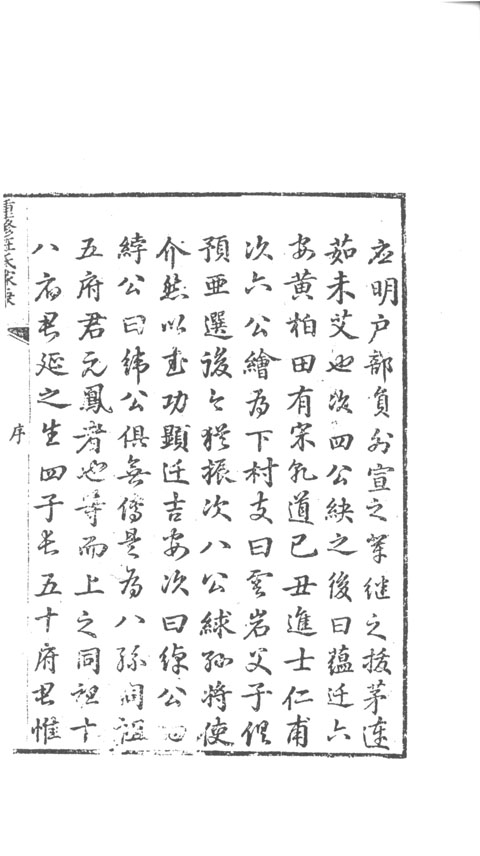 应明户部負外宣之军继之拔茅連
茹未艾也次四公鈌之後曰蕴迁六
安黄柏田有宋乾道己丑進士仁甫
次六公繪为下村支曰雲岩父子俱
預亜選後之猶振次八公絿孙将使
介然以武功顯迁吉安次曰綽公
綍公曰緯公俱無傳是為八孫同祖
五府君元鳳者也等而上之同祖十
八府君延之生四子長五十府君惟
重修汪氏家乘
序